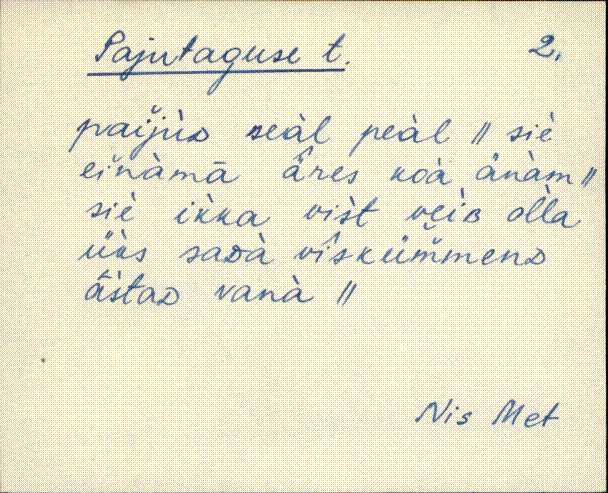 Pajutaguse t. 2.
paĭjùᴅ seàl peàl // siè
eĭnàmā ä̂res koà änàm //
siè ikka vist veìʙ olla
üks saᴅà vî̀sküm̆menᴅ
ästaᴅ vanà //
Nis Met